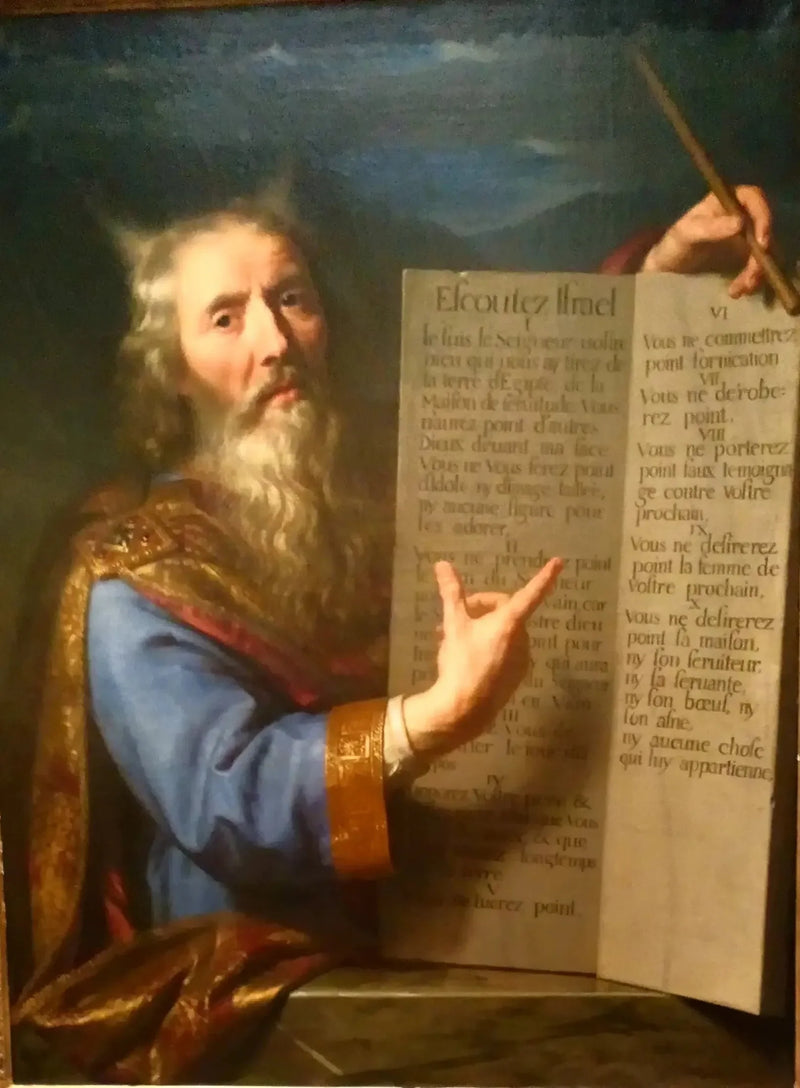 Eſcoutez Iſrael
I
Ie ſuis le Seigneur voſtre
Dieu qui vous ay tirez de
la terre d'Egipte de la
Maiſon de ſeruitude. Vous
n'aurez point d'autres
Dieux deuant ma face
Vous ne Vous ferez point
d'Idole ny d'image taillée,
ny aucune figure pour
les adorer,
II
Vous ne prendrez point
le du
vain car
dieu
pour
qui aura
en Vain
III
Vous
le iour du
IV
Voſtre &
que Vous
& que
longtemps
terre
V
tuerez point.
VI
Vous ne commettrez
point fornication
VII
Vous ne dérobe=
rez point.
VIII
Vous ne porterez
point faux temoigna
ge contre Voſtre
prochain,
IX
Vous ne deſirerez
point la femme de
Voſtre prochain,
X
Vous ne deſirerez
point ſa maiſon,
ny ſon ſeruiteur,
ny ſa ſeruante,
ny ſon bœuf, ny
ſon aſne,
ny aucune choſe
qui luy appartienne,